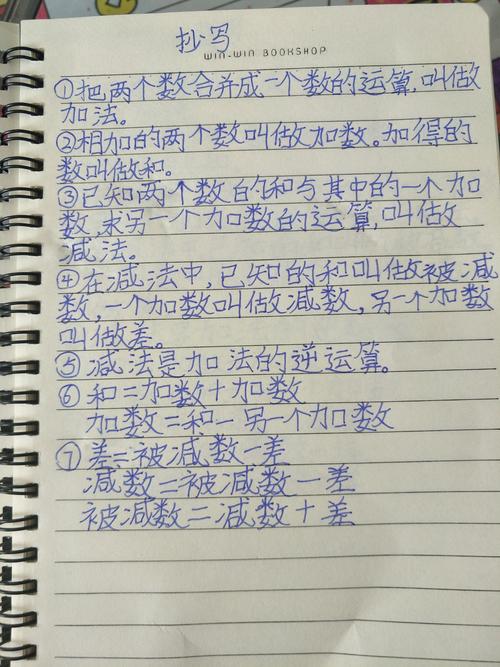 抄写
WIN-WIN BOOKSHOP
①把两个数合并成一个数的运算,叫做
加法。
②相加的两个数叫做加数。加得的
数叫做和。
③已知两个数的和与其中的一个加
数,求另一个加数的运算,叫做
减法。
④在减法中,已知的和叫做被减
数,一个加数叫做减数,另一个加数
叫做差。
⑤减法是加法的逆运算。
⑥和=加数+加数
加数=和-另一个加数
⑦差=被减数-差
减数=被减数-差
被减数=减数+差